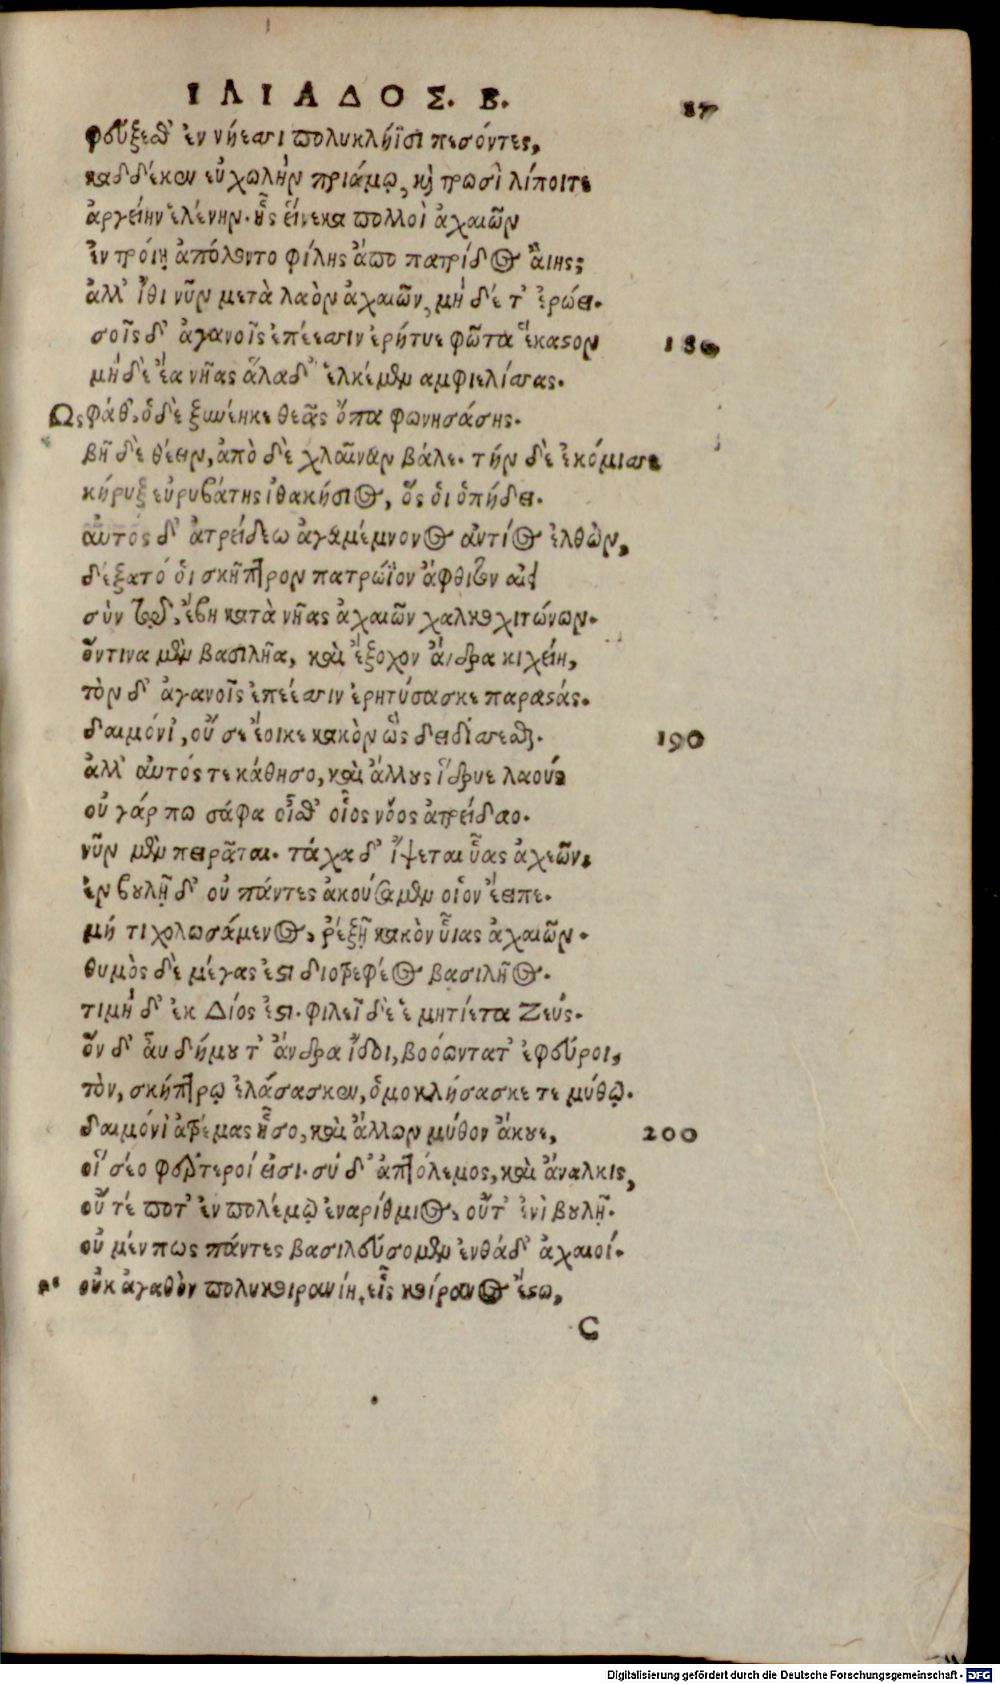 ΙΛΙΑΔΟΣ. Β.
27
φεύξεσθ' ἐν νήεσσι πολυκλήϊσι πεσόντες,
καδδέκεν εὐχωλὴν πριάμῳ, καὶ τρωσὶ λίποιτε
ἀργείην ἑλένην. ἧς εἵνεκα πολλοὶ ἀχαιῶν
ἐν τρόιῃ ἀπόλοντο φίλης ἄπο πατρίδος ἄιης;
ἀλλ' ἴθι νῦν μετὰ λαὸν ἀχαιῶν, μὴ δέ τ' ἐρώει.
σοῖς δ' ἀγανοῖς ἐπέεσσιν ἐρήτυε φῶτα ἕκαστον 180
μὴ δὲ ἔα νῆας ἅλαδ' ἑλκέμεν αμφιελίσσας.
Ως φάθ', ὁ δὲ ξυνέηκε θεᾶς ὄπα φωνησάσης.
βῆ δὲ θέειν, ἀπὸ δὲ χλαῖναν βάλε. τὴν δὲ ἐκόμισσε
κήρυξ εὐρυβάτης ἰθακήσιος, ὅς ὁι ὀπήδει.
αὐτὸς δ' ἀτρείδεω ἀγαμέμνονος ἀντίος ἐλθὼν,
δέξατό ὁι σκῆπτρον πατρώϊον ἄφθιτον αἰεὶ
σὺν τῷδ', ἔβη κατὰ νῆας ἀχαιῶν χαλκοχιτώνων.
ὅντινα μὲν βασιλῆα, καὶ ἔξοχον ἄνδρα κιχείη,
τὸν δ' ἀγανοῖς ἐπέεσσιν ἐρητύσασκε παραστάς.
δαιμόνι', οὔ σε ἔοικε κακὸν ὣς δειδίσσεσθαι. 190
ἀλλ' αὐτός τε κάθησο, καὶ ἄλλους ἵδρυε λαούς
οὐ γάρ πω σάφα οἶσθ' οἷος νόος ἀτρείδαο.
νῦν μὲν πειρᾶται. τάχα δ' ἴψεται υἷας ἀχεῶν,
ἐν βουλῇ δ' οὐ πάντες ἀκούσαμεν οἷον ἔειπε.
μή τι χολωσάμενος, ῥέξῃ κακὸν υἷας ἀχαιῶν.
θυμὸς δὲ μέγας ἐστὶ διοτρεφέος βασιλῆος.
τιμὴ δ' ἐκ Διός ἐστι. φιλεῖ δὲ ἑ μητίετα Ζεύς.
ὃν δ' ἂυ δήμου τ' ἄνδρα ἴδοι, βοόωντατ' ἐφεύροι,
τὸν, σκήπτρῳ ἐλάσασκεν, ὁμοκλήσασκε τε μύθῳ.
δαιμόνι' ἀτρέμας ἧσο, καὶ ἄλλων μύθον ἄκουε, 200
οἳ σέο φέρτεροί εἰσι. σὺ δ' ἀπτόλεμος, καὶ ἄναλκις,
οὔ τέ ποτ' ἐν πολέμῳ ἐναρίθμιος, οὔτ' ἐνὶ βουλῇ.
οὐ μέν πως πάντες βασιλεύσομεν ἐνθάδ' ἀχαιοί.
οὐκ ἀγαθὸν πολυκοιρανίη, εἷς κοίρανος ἔστω,
C
Digitalisierung gefördert durch die Deutsche Forschungsgemeinschaft - DFG